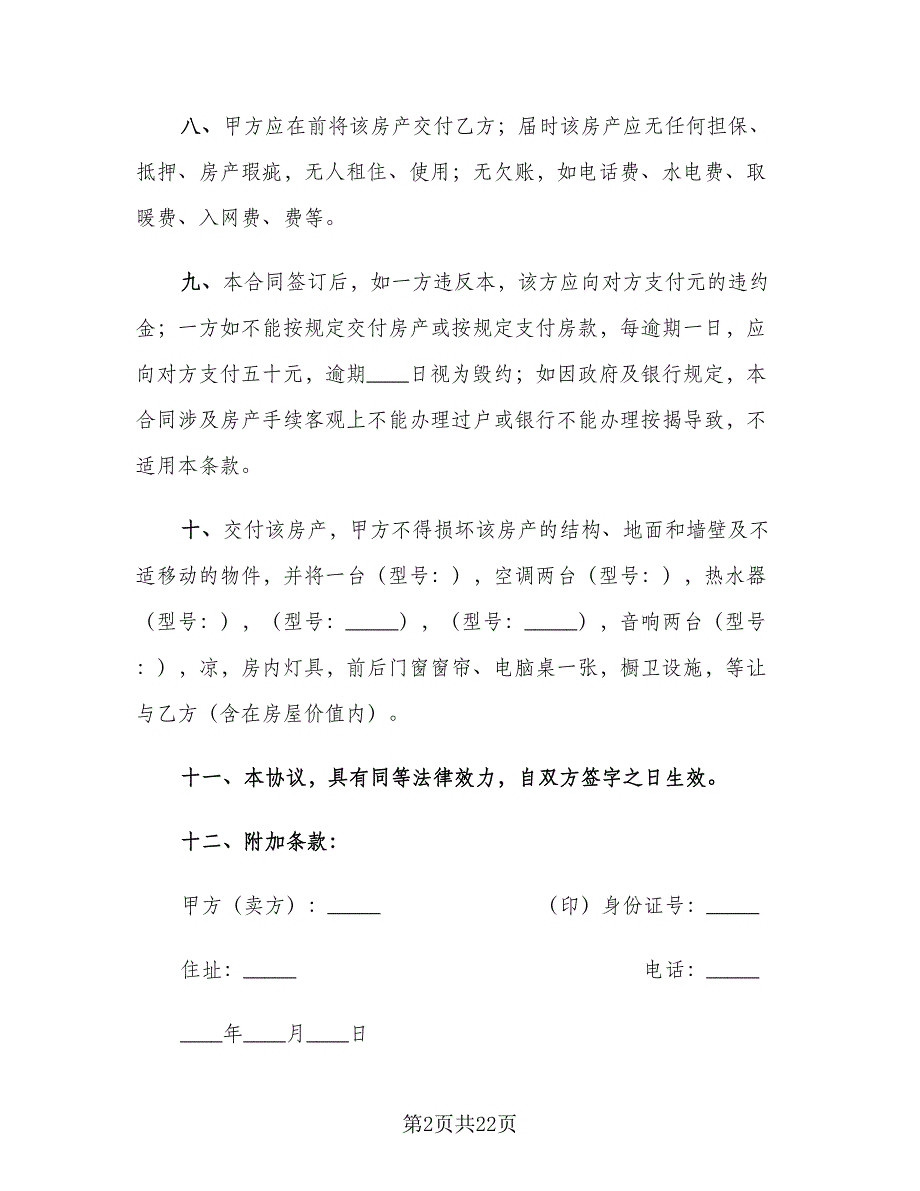 八、甲方应在前将该房产交付乙方；届时该房产应无任何担保、
抵押、房产瑕疵，无人租住、使用；无欠账，如电话费、水电费、取
暖费、入网费、费等。
九、本合同签订后，如一方违反本，该方应向对方支付元的违约
金；一方如不能按规定交付房产或按规定支付房款，每逾期一日，应
向对方支付五十元，逾期____日视为毁约；如因政府及银行规定，本
合同涉及房产手续客观上不能办理过户或银行不能办理按揭导致，不
适用本条款。
十、交付该房产，甲方不得损坏该房产的结构、地面和墙壁及不
适移动的物件，并将一台（型号：），空调两台（型号：），热水器
（型号：），（型号：_____），（型号：_____），音响两台（型号
：），凉，房内灯具，前后门窗窗帘、电脑桌一张，橱卫设施，等让
与乙方（含在房屋价值内）。
十一、本协议，具有同等法律效力，自双方签字之日生效。
十二、附加条款：
甲方（卖方）：_____ （印）身份证号：_____
住址：_____ 电话：_____
____年____月____日
第2页共22页